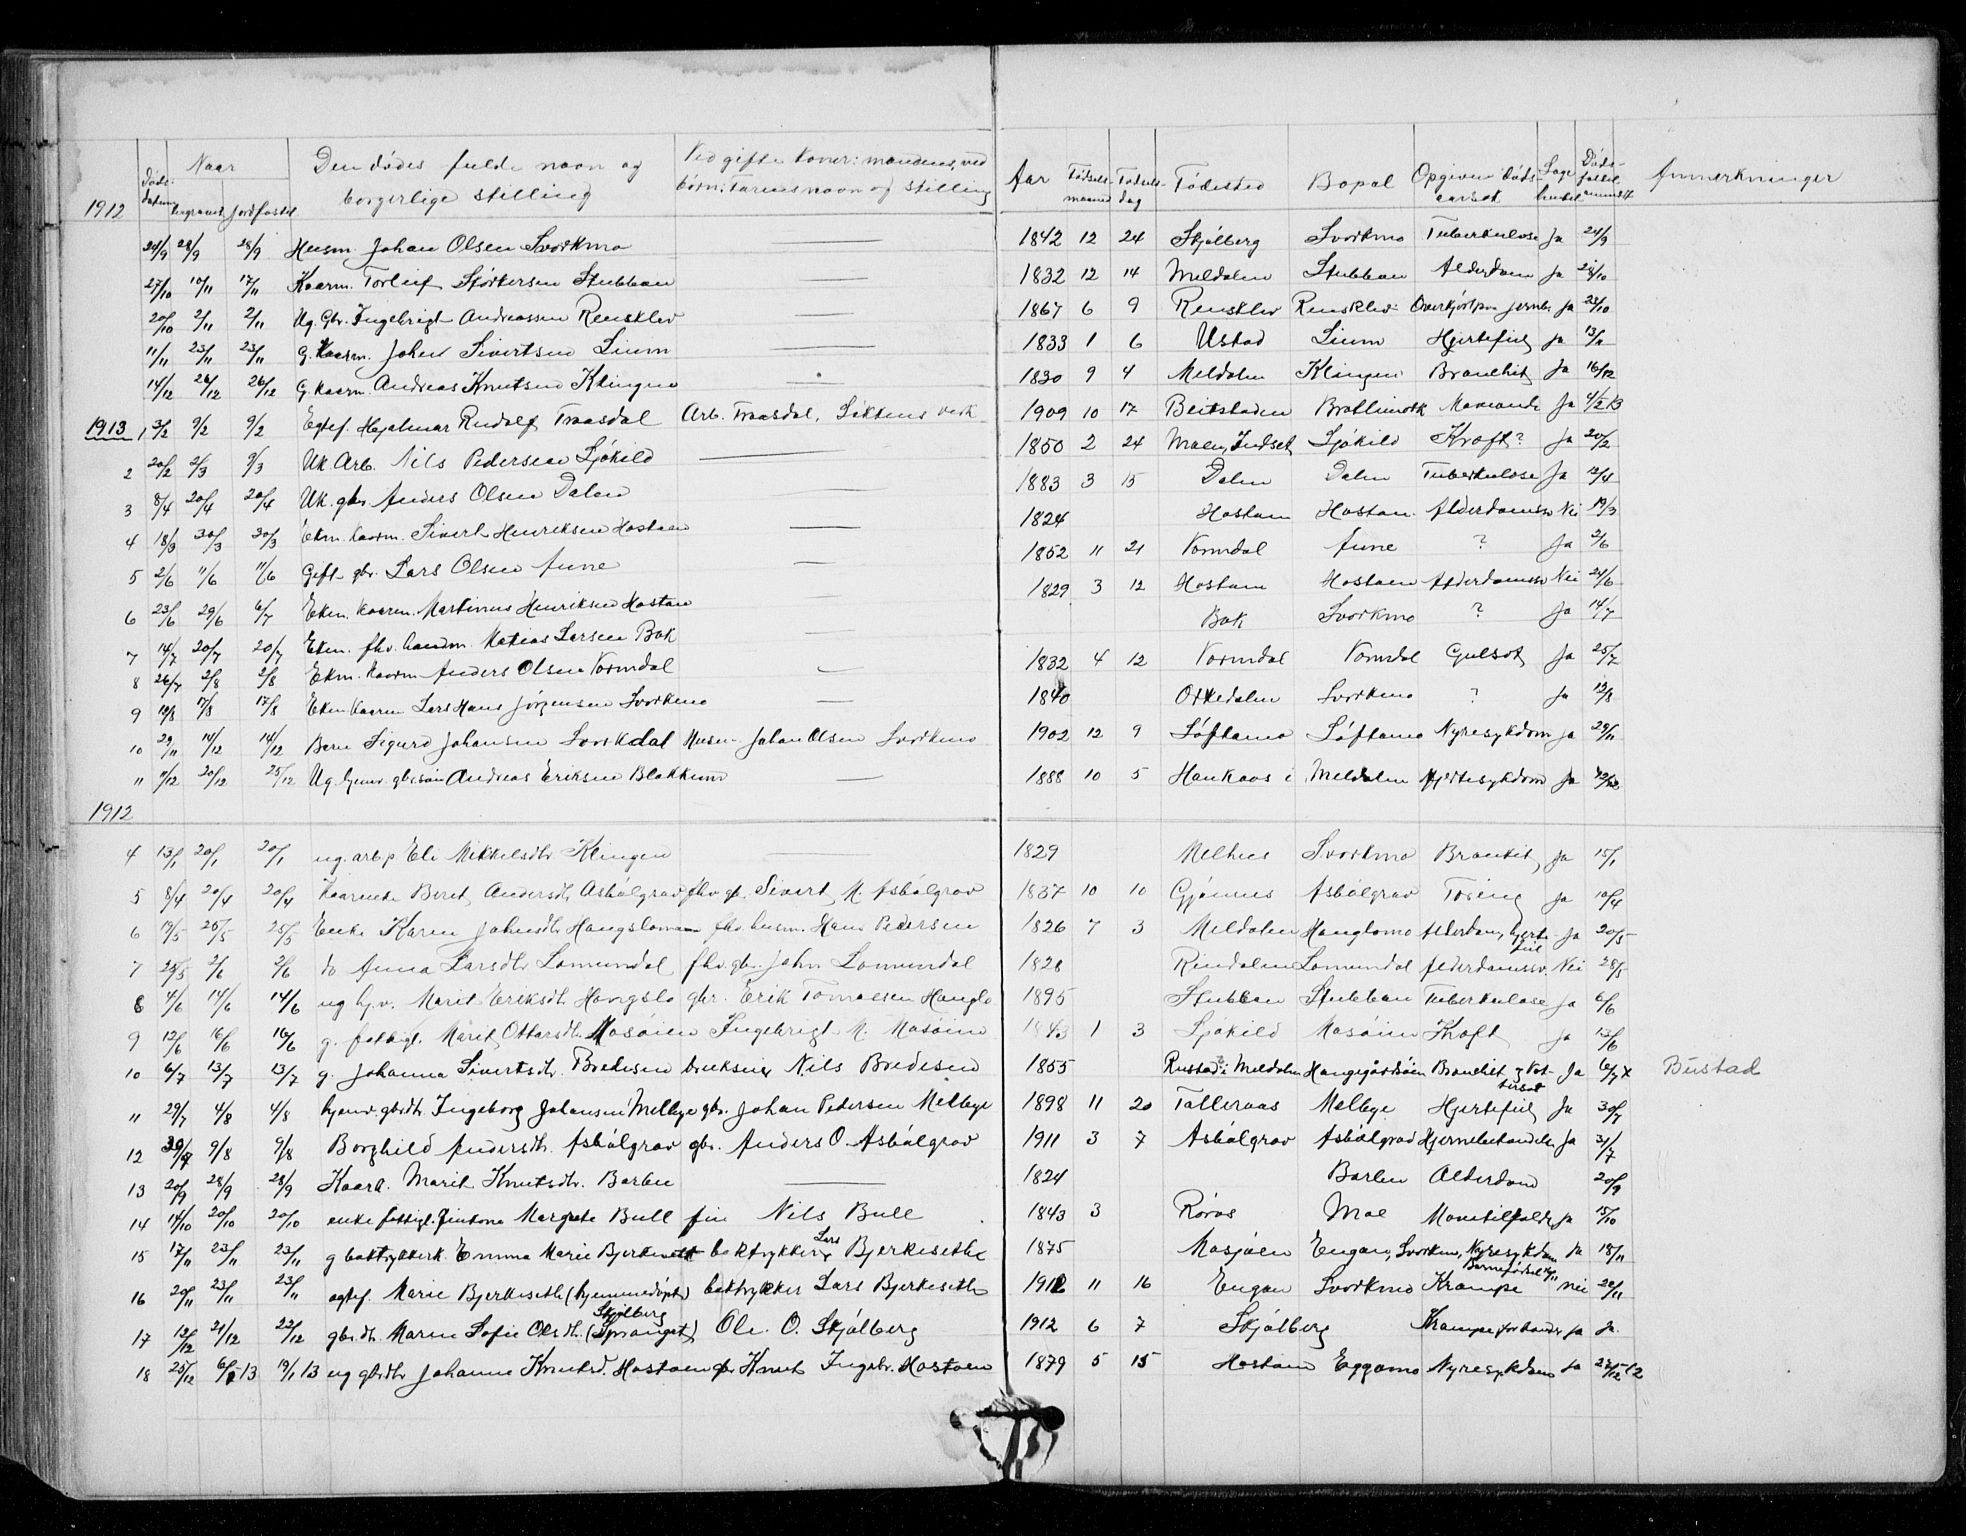 Naar Den dødes fulde navn og Ved gifte koner: mandens, ved Aar Fødsels- Fødsels- Fødested Bopæl Opgiven døds- Læge Døds- Anmerkninger
1912 Døds- datum begravet Jordfæstet borgerlige stilling børn: Farens navn og stilling maaned dag aarsak hentet faldet anmeldt
24/9 28/9 28/9 Husm. Johan Olsen Svorkmo — 1842 12 24 Skjølberg Svorkmo Tuberkulose Ja 24/9
27/10 10/11 17/11 Kaarm. Torleif Størkersen Stubban — 1832 12 14 Meldalen Stubban Alderdom Ja 28/10
20/10 2/11 2/11 Ug. Gbr. Ingebrigt Andreassen Rensklev — 1867 6 9 Rensklev Rensklev Overkjørt paa jernb. Ja 23/10
11/11 23/11 23/11 G. Kaarm. John Sivertsen Lium — 1833 1 6 Ustad Lium Hjertefeil Ja 13/11
14/12 26/12 26/12 G. Kaarm. Andreas Knutsen Klingen — 1830 9 4 Meldalen Klingen Bronchit Ja 16/12
1913 1 3/2 9/2 9/2 Egtef. Hjalmar Rudolf Traasdal Arb. Traasdal, Løkkens verk 1909 10 17 Beitstaden Bratliverk Ja 4/2 13
2 20/2 2/3 9/3 Uk Arb. Nils Pedersen Sjøkild — 1850 2 24 Moen, Indset Sjøkild Kræft? Ja 20/2
3 8/4 20/4 20/4 Uk. gbr. Anders Olsen Dalen — 1883 3 15 Dalen Dalen Tuberkulose Ja 12/4
4 18/3 30/3 30/3 Ekm. kaarm. Sivert Henriksen Hostaen — 1824 Hostaen Hostaen Alderdomssv. Nei 19/3
5 2/6 11/6 11/6 Gift gbr. Lars Olsen Aune — 1852 11 21 Vormdal Aune ? Ja 2/6
6 23/6 29/6 6/7 Ekm. kaarm. Martinus Henriksen Hostaen — 1829 3 12 Hostaen Hostaen Alderdomssv. Nei 24/6
7 14/7 20/7 20/7 Ekm. fhv. landm. Matias Larsen Bak — Bak Svorkmo ? Ja 14/7
8 26/7 2/8 2/8 Ekm. kaarm Anders Olsen Vormdal — 1832 4 12 Vormdal Vormdal Gulsot Ja 25/7
9 10/8 17/8 17/8 Ekm Kaarm Lars Hans Jørgensen Svorkmo — 1840 Orkedalen Svorkmo ? Ja 12/8
10 29/11 14/12 14/12 Barn Sigurd Johansen Svorkdal Husm. Johan Olsen Svorkmo 1902 12 9 Løftamo Løftamo Nyresykdom Ja 29/11
11 7/12 20/12 25/12 Ug. hjemv. gbr.søn Andreas Eriksen Blokkum — 1888 10 5 Haukaas i Meldalen Hjertesykdom Ja 12/12
1912
4 13/1 20/1 20/1 ug. arb.p Eli Mikkelsdtr Klingen — 1829 Melhus Svorkmo Bronkit Ja 15/1
5 8/4 20/4 20/4 Kaarenke Beret Andersdtr Asbølgrav fhv. gb. Sivert M. Asbølgrav 1837 10 10 Gjønnes Asbølgrav Tæring Ja 10/4
6 19/5 25/5 25/5 Enke Karen Johnsdtr Haugslomoen fhv. husm. Hans Pedersen 1826 7 3 Meldalen Hauglomo Alderdom, hjerte- feil Ja 20/5
7 25/5 2/6 2/6 do Anna Larsdtr Lomundal fhv. gbr. John Lomundal 1828 Rindalen Lomundal Alderdomssv. Nei 28/5
8 4/6 14/6 14/6 ug hjv. Marit Eriksdtr Haugslo gbr. Erik Tomassen Hauglo 1895 Stubban Stubban Tuberkulose Ja 6/6
9 12/6 16/6 16/6 g. fattigl. Marit Ottarsdtr. Mosøien Ingebrigt M. Mosøien 1843 1 3 Sjøkild Mosøien Kræft Ja 13/6
10 6/7 13/7 13/7 g. Johanna Sivertsdtr. Bredesen brukseier Nils Bredesen 1855 Rustad i Meldalen Haugegårdsøien Bronchit og Vat- tersot Ja 6/7 x Bustad
11 29/7 4/8 4/8 hjemv. gbrdtr Ingeborg Johansen Melbye gbr. Johan Pedersen Melbye 1898 11 20 Talleraas Melbye Hjertefeil Ja 30/7
12 30/7 9/8 9/8 Borghild Andersdtr. Asbølgrav gbr. Anders O. Asbølgrav 1911 3 7 Asbølgrav Asbølgrav Hjernebetændelse Ja 31/7
13 20/9 28/9 28/9 Kaark. Marit Knutsdtr. Barlien — 1824 Barlien Alderdom 20/9
14 14/10 20/10 20/10 enke fattigl. Margrete Bull Nils Bull 1843 3 Røros Moe Ja 15/10
15 17/11 23/11 23/11 g boktrykkerk. Emma Marie Bjerkeseth boktrykker Lars Bjerkesethe 1875 Mosjøen Engan, Svorkmo, Nyresykdom Barnefødsel 16/11 Ja 18/11
16 20/11 23/11 23/11 egtef. Marie Bjerkeseth (hjemmedøpt) boktrykker Lars Bjerkeseth 1912 11 16 Engan Svorkmo Krampe Nei 20/11
17 12/12 21/12 22/12 gbr.dtr. Maren Sofie Olsdtr. (Spranget) Skjølberg Ole O. Skjølberg 1912 6 7 Skjølberg Krampe Ja Ja.
18 25/12 6/1-13 19/1 13 ug gbrdtr Johanne Knutsd. Hostaen gbr Knut Ingebr. Hostaen 1879 5 15 Hostaen Eggamo Nyresykdom Ja 28/12 12